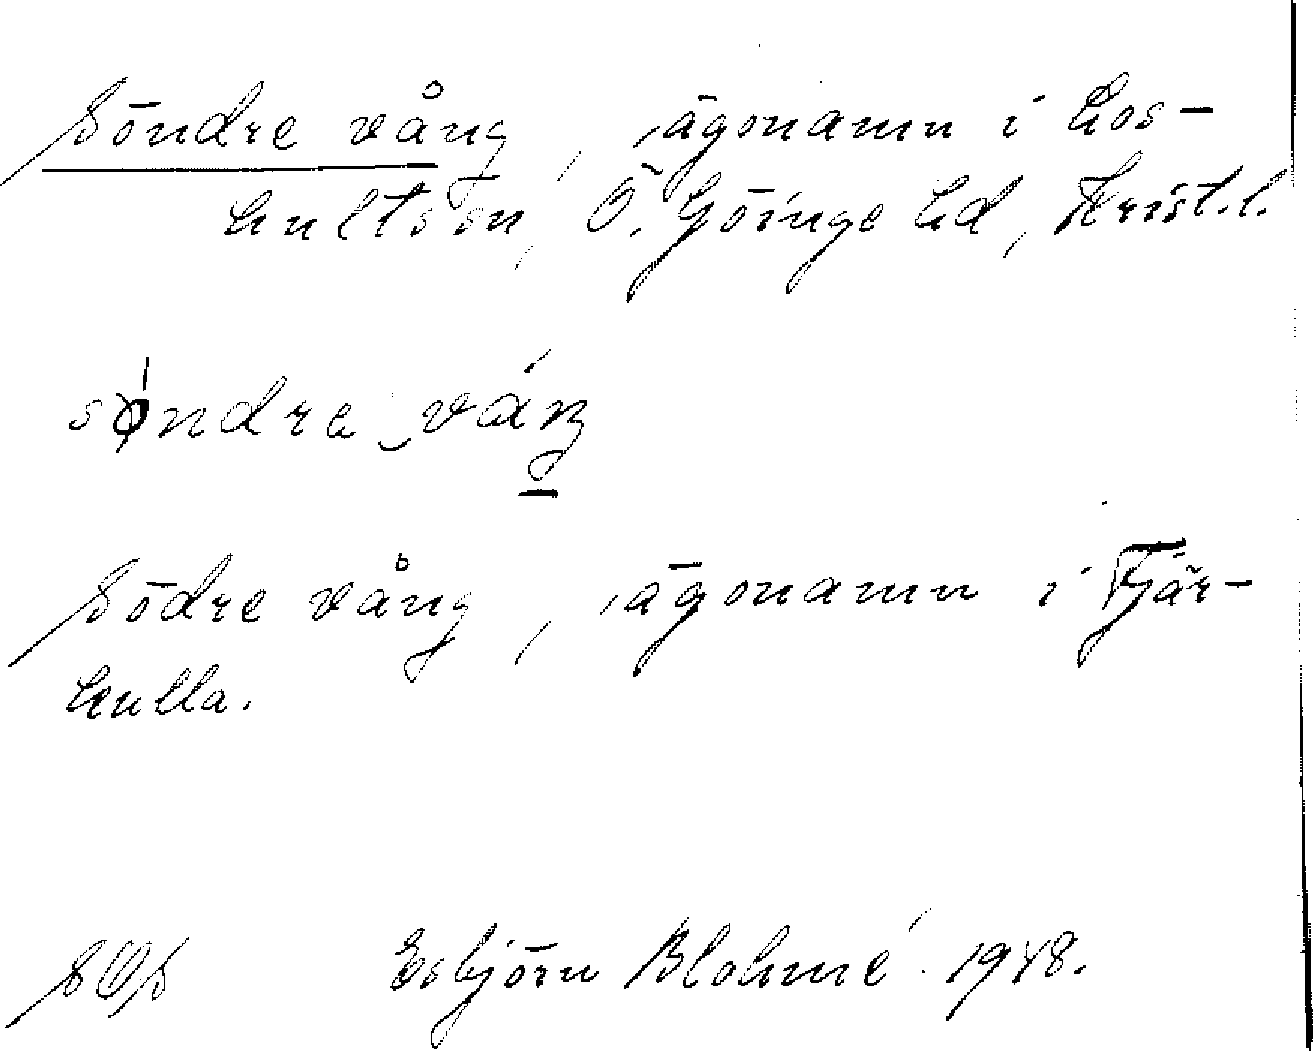 Söndre vång, ägonamn i Los-
hults sn, Ö. Göinge hd, Krist.l.
sǿndre‿váŋ
Södre vång, ägonamn i Tjär-
hulla.
SOS Esbjörn Blohmé 1948.